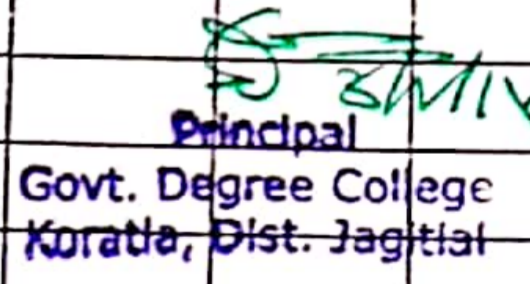 Principal
Govt. Degree College
Koratla, Dist. Jagitial